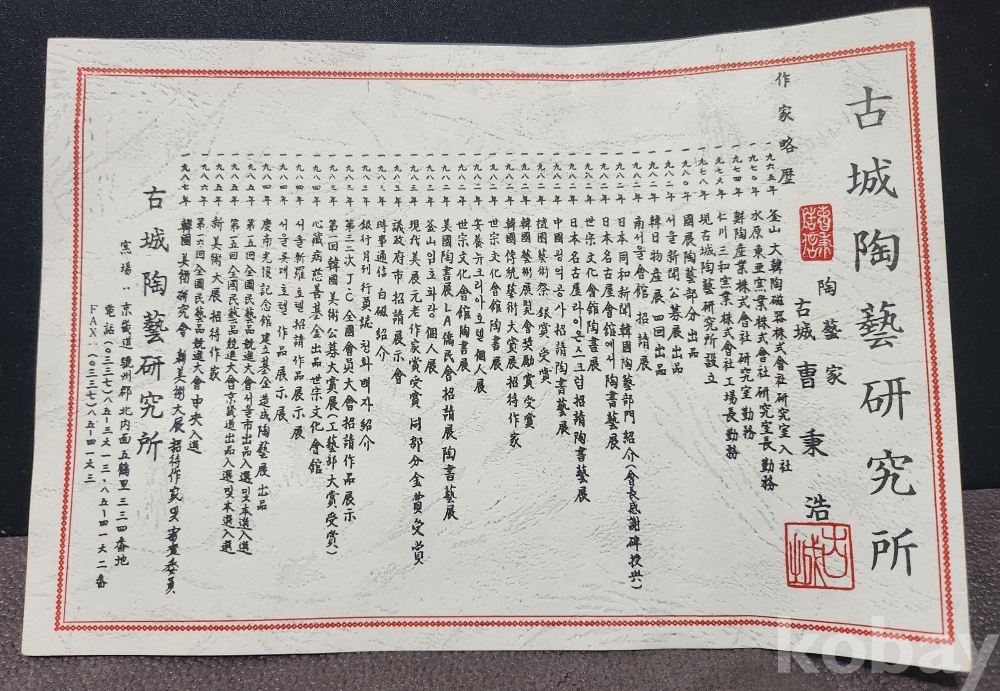 古城陶藝研究所
陶藝家
古城 曹秉浩
古城
作家略歷
一九六五年 釜山 大韓陶磁器株式會社 研究室 入社
一九七〇年 水原 東亜窯業株式會社 研究室長 勤務
一九七四年 鮮陶産業株式會社 研究室 勤務
一九七六年 仁川 三和窯業株式會社 工場長 勤務
一九七八年 現古城陶藝研究所 設立
一九八〇年 國展陶藝部分 出品
一九八一年 서울新聞 公募展 出品
一九八一年 韓日物産展 四回 出品
一九八一年 南서울會館 招請展
一九八二年 日本 同和新聞 韓國陶藝部門 紹介(會長感謝碑 授與)
一九八二年 日本 名古屋會館에서 陶書藝展
一九八二年 世宗文化會館 陶書展
一九八二年 日本 名古屋 라이온스크럽 招請 陶書藝展
一九八二年 中國 원의공사 招請 陶書藝展
一九八二年 韓國藝術祭 銀賞 受賞
一九八二年 韓國藝術展覧會 奬勵賞 受賞
一九八二年 韓國傳統藝術大賞展 招待作家
一九八二年 世宗文化會館 陶書展
一九八二年 安養 뉴크리아호텔 個人展
一九八二年 世宗文化會館 陶書藝展
一九八三年 美國 陶書展 LA僑民會 招請展 陶書藝展
一九八三年 釜山 임호화랑 個人展
一九八三年 現代美展 元老作家賞 受賞 同部分 金賞 受賞
一九八三年 議政府市 招請 展示會
一九八三年 時事通信 白磁 紹介
一九八三年 銀行月刊行員誌 천화백자 紹介
一九八三年 第三二次 J·C 全國會員大會 招請作品 展示
一九八四年 第一回 韓國美術公募大賞展(工藝部 大賞 受賞)
一九八四年 心臟病 慈善基金 出品 世宗文化會館
一九八四年 서울新羅호텔 招請作品 展示展
一九八四年 서울롯데호텔 作品展示展
一九八四年 慶南光復記念館 建立基金造成 陶藝展 出品
一九八五年 第一五回 全國民藝品競進大會 서울市 出品入選 및 本選入選
一九八五年 第一五回 全國民藝品競進大會 京畿道 出品入選 및 本選入選
一九八五年 新美術大展 招待作家
一九八六年 第一六回 全國民藝品競進大會 中央 入選
一九八七年 韓國美術研究會 新美術大展 招待作家 및 審査委員
古城陶藝研究所
窯場：京畿道 驪州郡 北内面 五鶴里 三二四番地
電話(〇三三七)八五-三七一三, 八五-四一六二番
FAX：(〇三三七)八五-四一六三
kobay